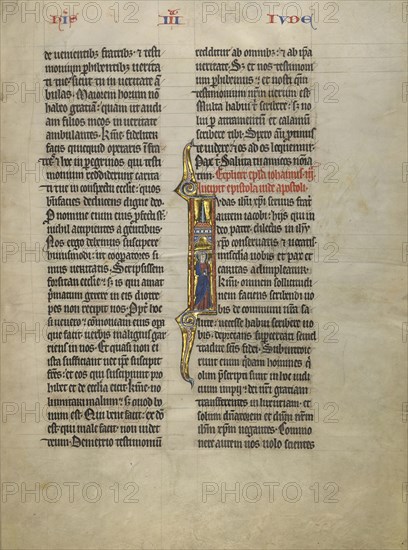 NIS III IUDE
de venientibus fratribus et testi
monium perhibentibus verita
ti tue sicut tu in veritate am
bulas. Maiorem horum non
habeo gratiam quam ut audi
am filios meos in veritate
ambulantes. fideliter
facis quicquid operaris in fra
tres et hoc in peregrinos qui testi
monium reddiderunt carita
ti tue in conspectu ecclesie quos
benefacies deducens digne deo
Pro nomine enim eius profecti sunt
nichil accipientes a gentibus
Nos ergo debemus suscipere
huiusmodi ut cooperatores si
mus veritatis. Scripsissem
forsitan ecclesie sed is qui amat
primatum gerere in eis diotre
pes non recipit nos. Propter hoc
si venero commoneam eius ope
ra que facit verbis malignis gar
riens in nos. Et quasi non ei
ista sufficiant nec ipse suscipit
fratres et eos qui suscipiunt pro
hibet et de ecclesia eicit
imitari malum sed quod bo
num est. Qui bene facit ex deo
est qui male facit non videt
deum. Demetrio testimonium
redditur ab omnibus et ab ipsa
veritate. Sed et nos testimoni
um perhibemus et nosti quoniam
testimonium nostrum verum est
Multa habui scribere sed no
lui per atramentum et calamum
scribere tibi. Spero autem protinus
te videre et os ad os loquemur.
Pax tibi. Saluta tu amicos nomina
tim. Explicit epistola iohannis III
Incipit epistola iude apostoli
Iudas ihu xpi servus frater
autem iacobi his qui in
deo patre dilectis et in ihu
xpo conservatis et vocatis
misericordia vobis et pax et
caritas adimpleatur.
omnem sollicitudi
nem faciens scribendi vo
bis de communi vestra sa
lute necesse habui scribere vo
bis deprecans supercertari semel
tradite sanctis fidei. Subintroie
runt enim quidam homines qui
olim prescripti sunt in hoc iudici
um impii dei nostri gratiam
transferentes in luxuriam et
solum dominatorem et dominum nostrum ihm
xpm negantes. Commo
nere autem vos volo scientes